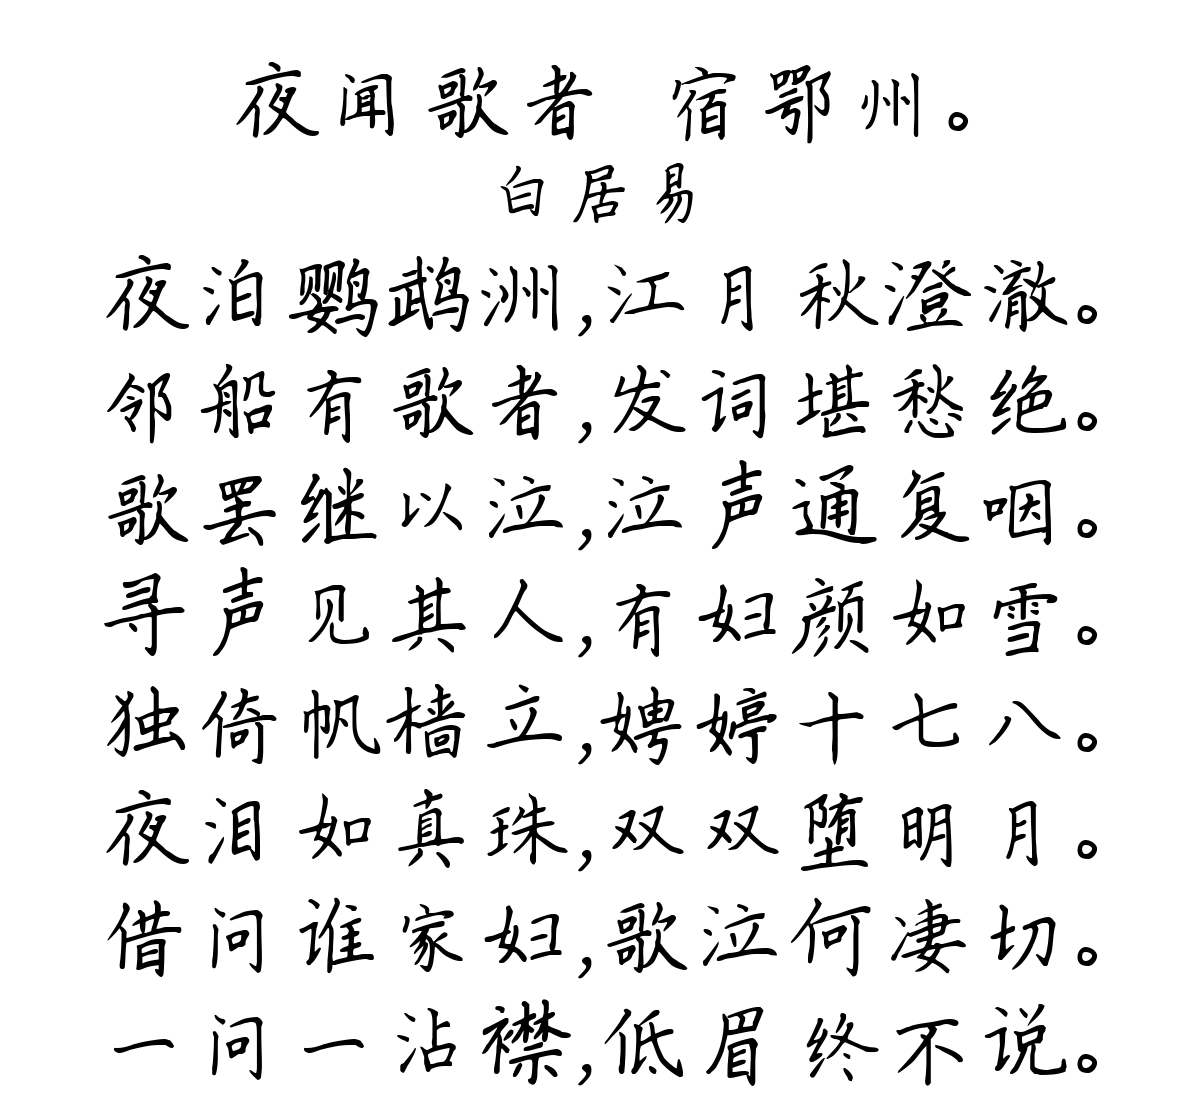 夜闻歌者 宿鄂州。
白居易
夜泊鹦鹉洲,江月秋澄澈。
邻船有歌者,发词堪愁绝。
歌罢继以泣,泣声通复咽。
寻声见其人,有妇颜如雪。
独倚帆樯立,娉婷十七八。
夜泪如真珠,双双堕明月。
借问谁家妇,歌泣何凄切。
一问一沾襟,低眉终不说。